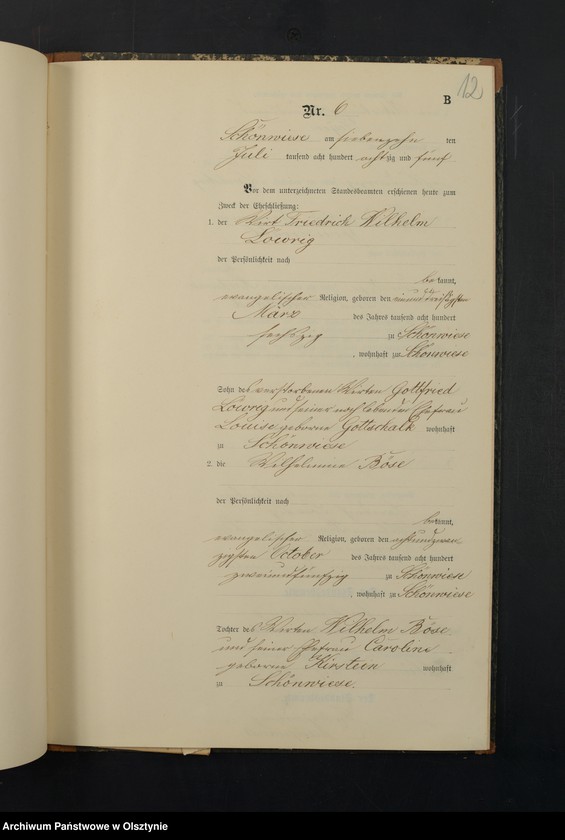 12
B
Nr. 6
Schönwiese am siebenzehn ten
Juli tausend acht hundert achtzig und fünf
Vor dem unterzeichneten Standesbeamten erschienen heute zum
Zweck der Eheschließung:
1. der Wirt Friedrich Wilhelm
Lowrig
der Persönlichkeit nach
bekannt,
evangelischer Religion, geboren den
März des Jahres tausend acht hundert
sechszig zu Schönwiese
, wohnhaft zu Schönwiese
Sohn des verstorbenen Wirten Gottfried
Lowrig und seiner noch lebenden Ehefrau
Louise geborne Gottschalk wohnhaft
zu Schönwiese
2. die Wilhelmine Böse
der Persönlichkeit nach
bekannt,
evangelischer Religion, geboren den achtundzwan
zigsten October des Jahres tausend acht hundert
zweiundfünfzig zu Schönwiese
, wohnhaft zu Schönwiese
Tochter des Wirten Wilhelm Böse
und seiner Ehefrau Caroline
geborne Kirstein wohnhaft
zu Schönwiese.
Archiwum Państwowe w Olsztynie